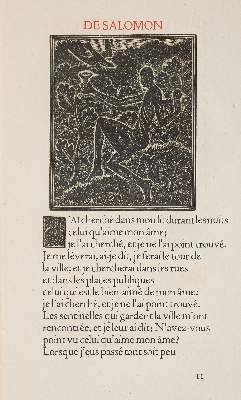 DE SALOMON
J'AI cherché dans mon lit durant les nuits
celui qu'aime mon âme;
je l'ai cherché, et je ne l'ai point trouvé.
Je me lèverai, ai-je dit, je ferai le tour de
la ville; et je chercherai dans les rues
et dans les places publiques
celui qui est le bien-aimé de mon âme:
je l'ai cherché, et je ne l'ai point trouvé.
Les sentinelles qui gardent la ville m'ont
rencontrée, et je leur ai dit: N'avez-vous
point vu celui qu'aime mon âme?
Lorsque j'eus passé tant soit peu
11